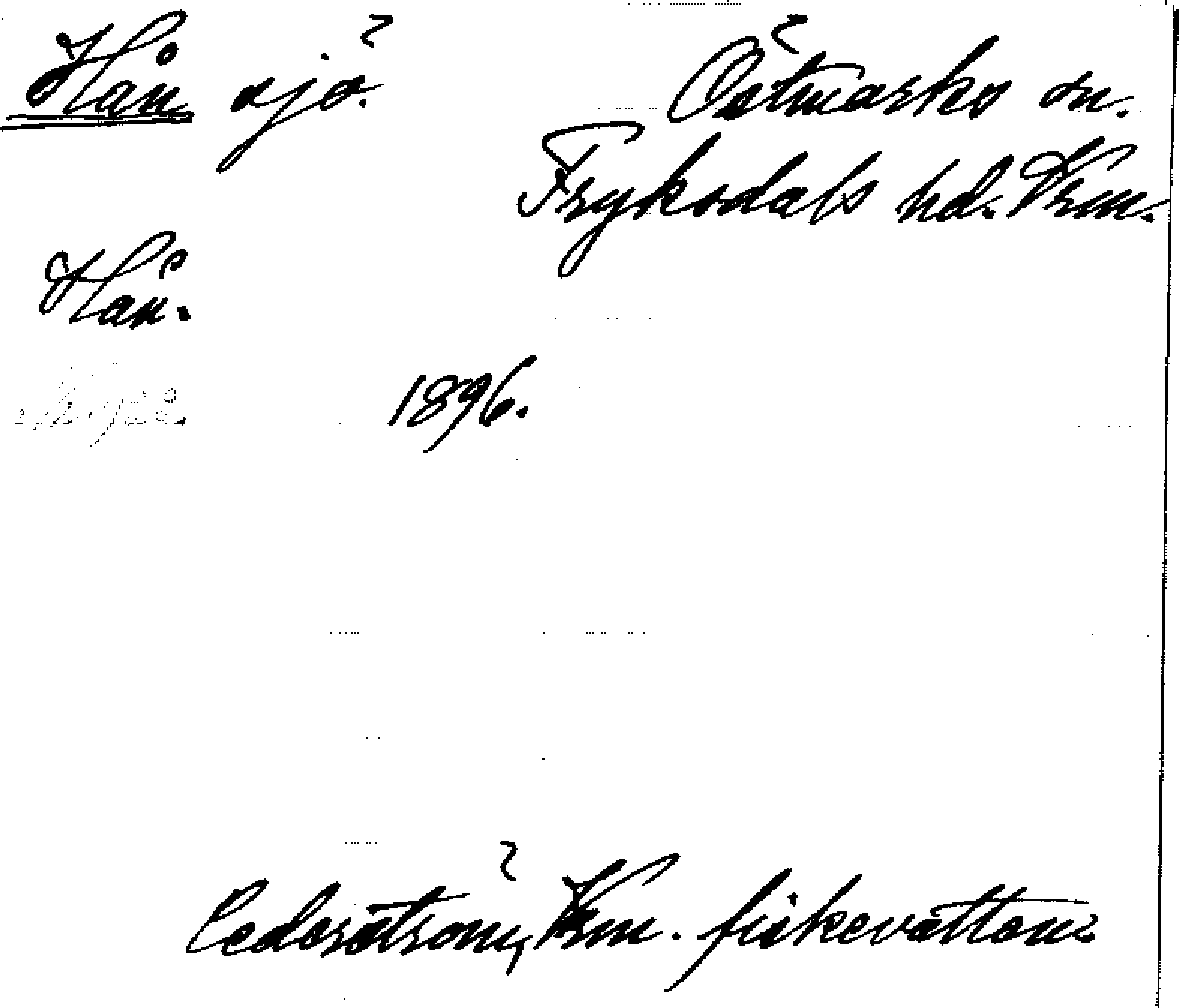 Hån sjö. Östmarks sn.
Fryksdals hd. Vrm.
Hån.
1896.
Cederström, Vrm. fiskevatten.